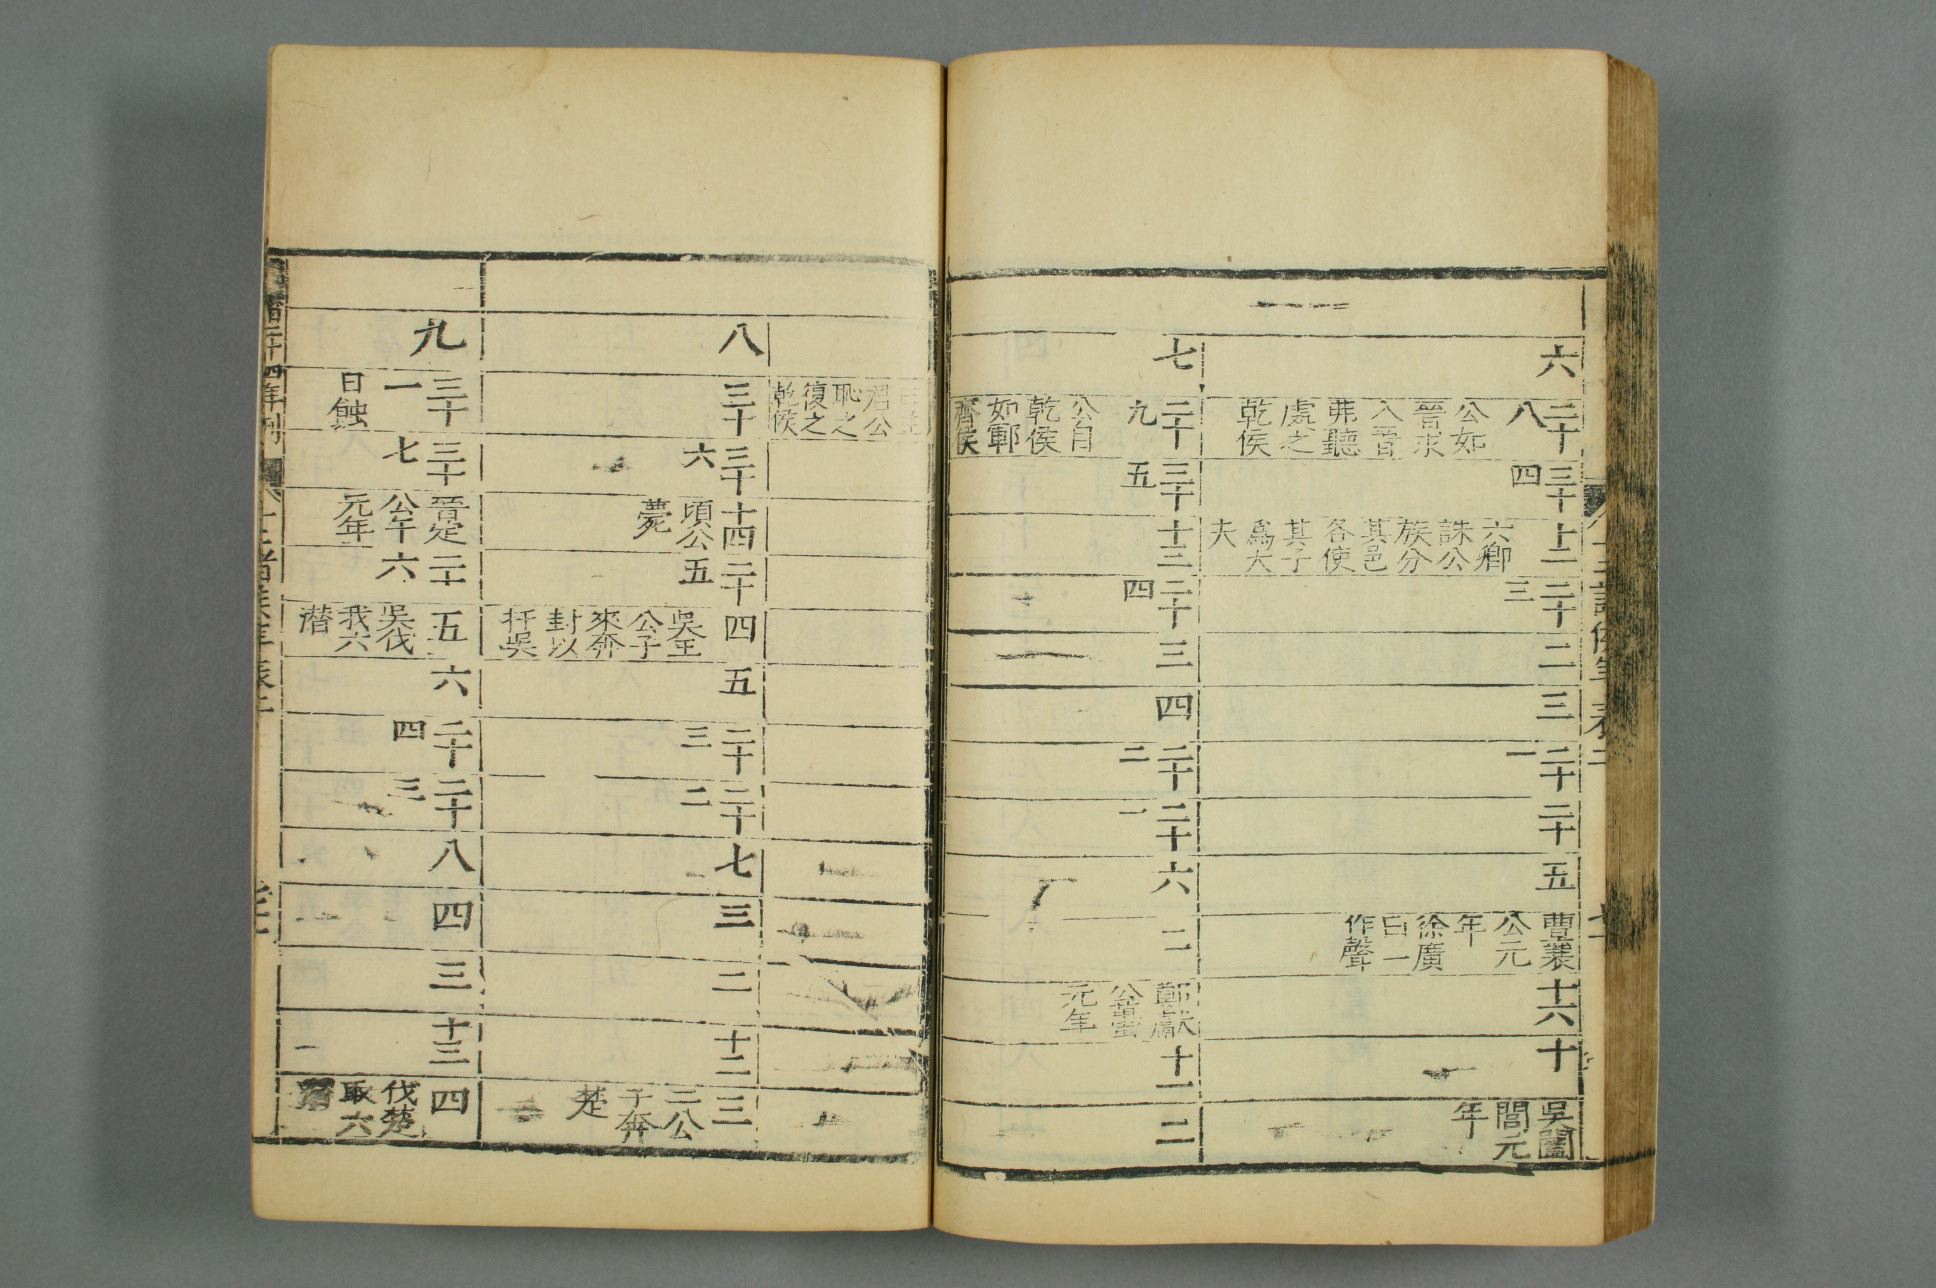 六
二十八
公如
晉求
入晉
弗聽
處之
乾侯
三十四
十二
六卿
誅公
族分
其邑
各使
其子
爲大
夫
二十三
二
三
二十一
二十
五
曹襄
公元
年
徐廣
曰一
作聲
十六
十
吳闔
閭元
年
七
二十九
公自
乾侯
如鄆
齊侯
三十五
十三
二十四
三
四
二十二
二十一
六
二
鄭獻
公蠆
元年
十一
二
曰主
君公
恥之
復之
乾侯
八
三十
三十六
十四
頃公
薨
二十五
四
吳王
公子
來奔
封以
扞吳
五
二十三
二十二
七
三
二
十二
三
三公
子奔
楚
九
三十一
日蝕
三十七
晉定
公午
元年
二十六
五
吳伐
我六
潛
六
二十四
二十三
八
四
三
十三
四
伐楚
取六